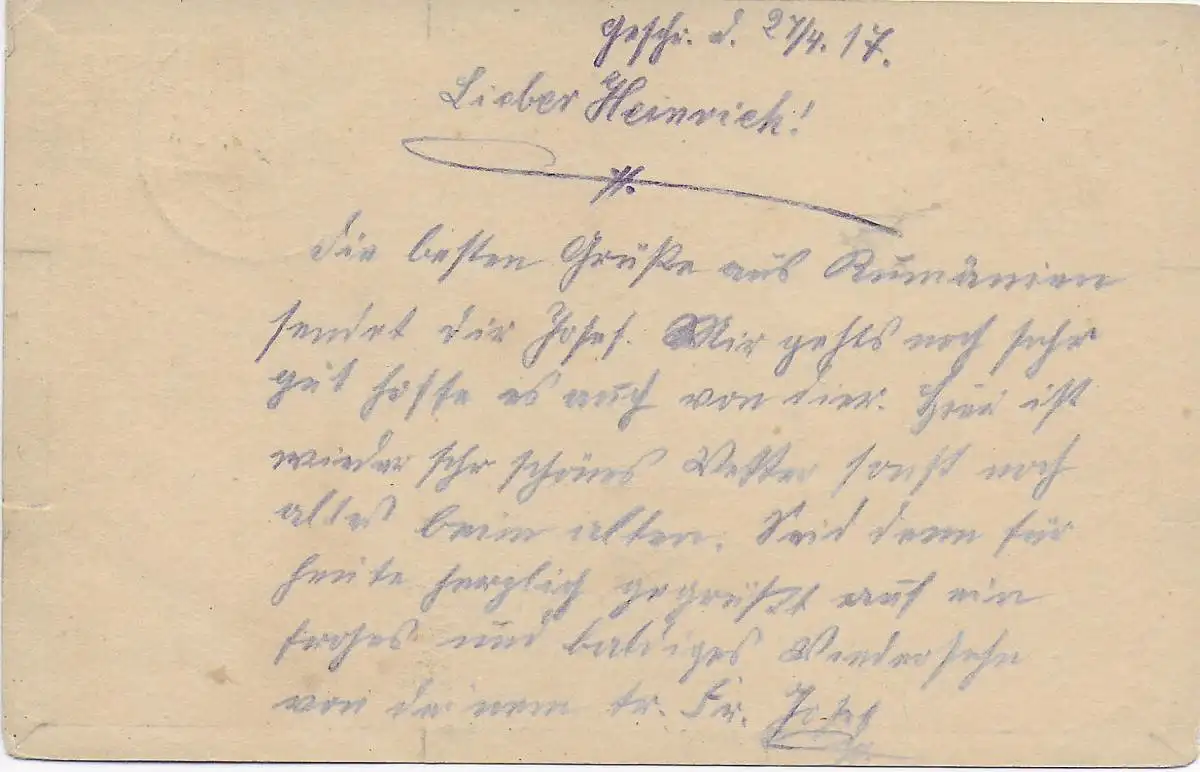 Geschr. d. 27/4. 17.
Lieber Heinrich!
Die besten Grüße aus Rumänien
sendet dir Josef. Mir gehts noch sehr
gut hoffe es auch von dier. Hier ist
wieder sehr schöns Wetter sonst noch
alles beim alten. Seid denn für
heute herzlich gegrüßt auf ein
frohes und baldiges Wiedersehn
von deinem tr. Fr. Josef